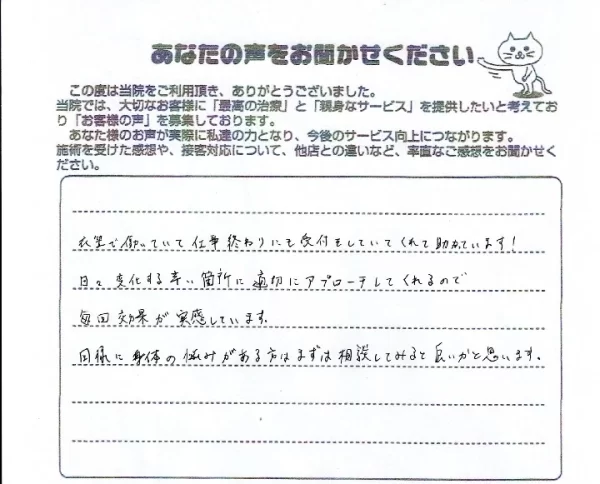 あなたの声をお聞かせください
この度は当院をご利用頂き、ありがとうございました。
当院では、大切なお客様に「最高の治療」と「親身なサービス」を提供したいと考えてお
り「お客様の声」を募集しております。
あなた様のお声が実際に私達の力となり、今後のサービス向上につながります。
施術を受けた感想や、接客対応について、他店との違いなど、率直なご感想をお聞かせく
ださい。
で働いていて仕事終わりにも受付をしていてくれて助かています!
日々変化する辛い箇所に適切にアプローチしてくれるので
毎回効果が実感しています。
同様に身体の悩みがある方はまずは相談してみると良いかと思います。